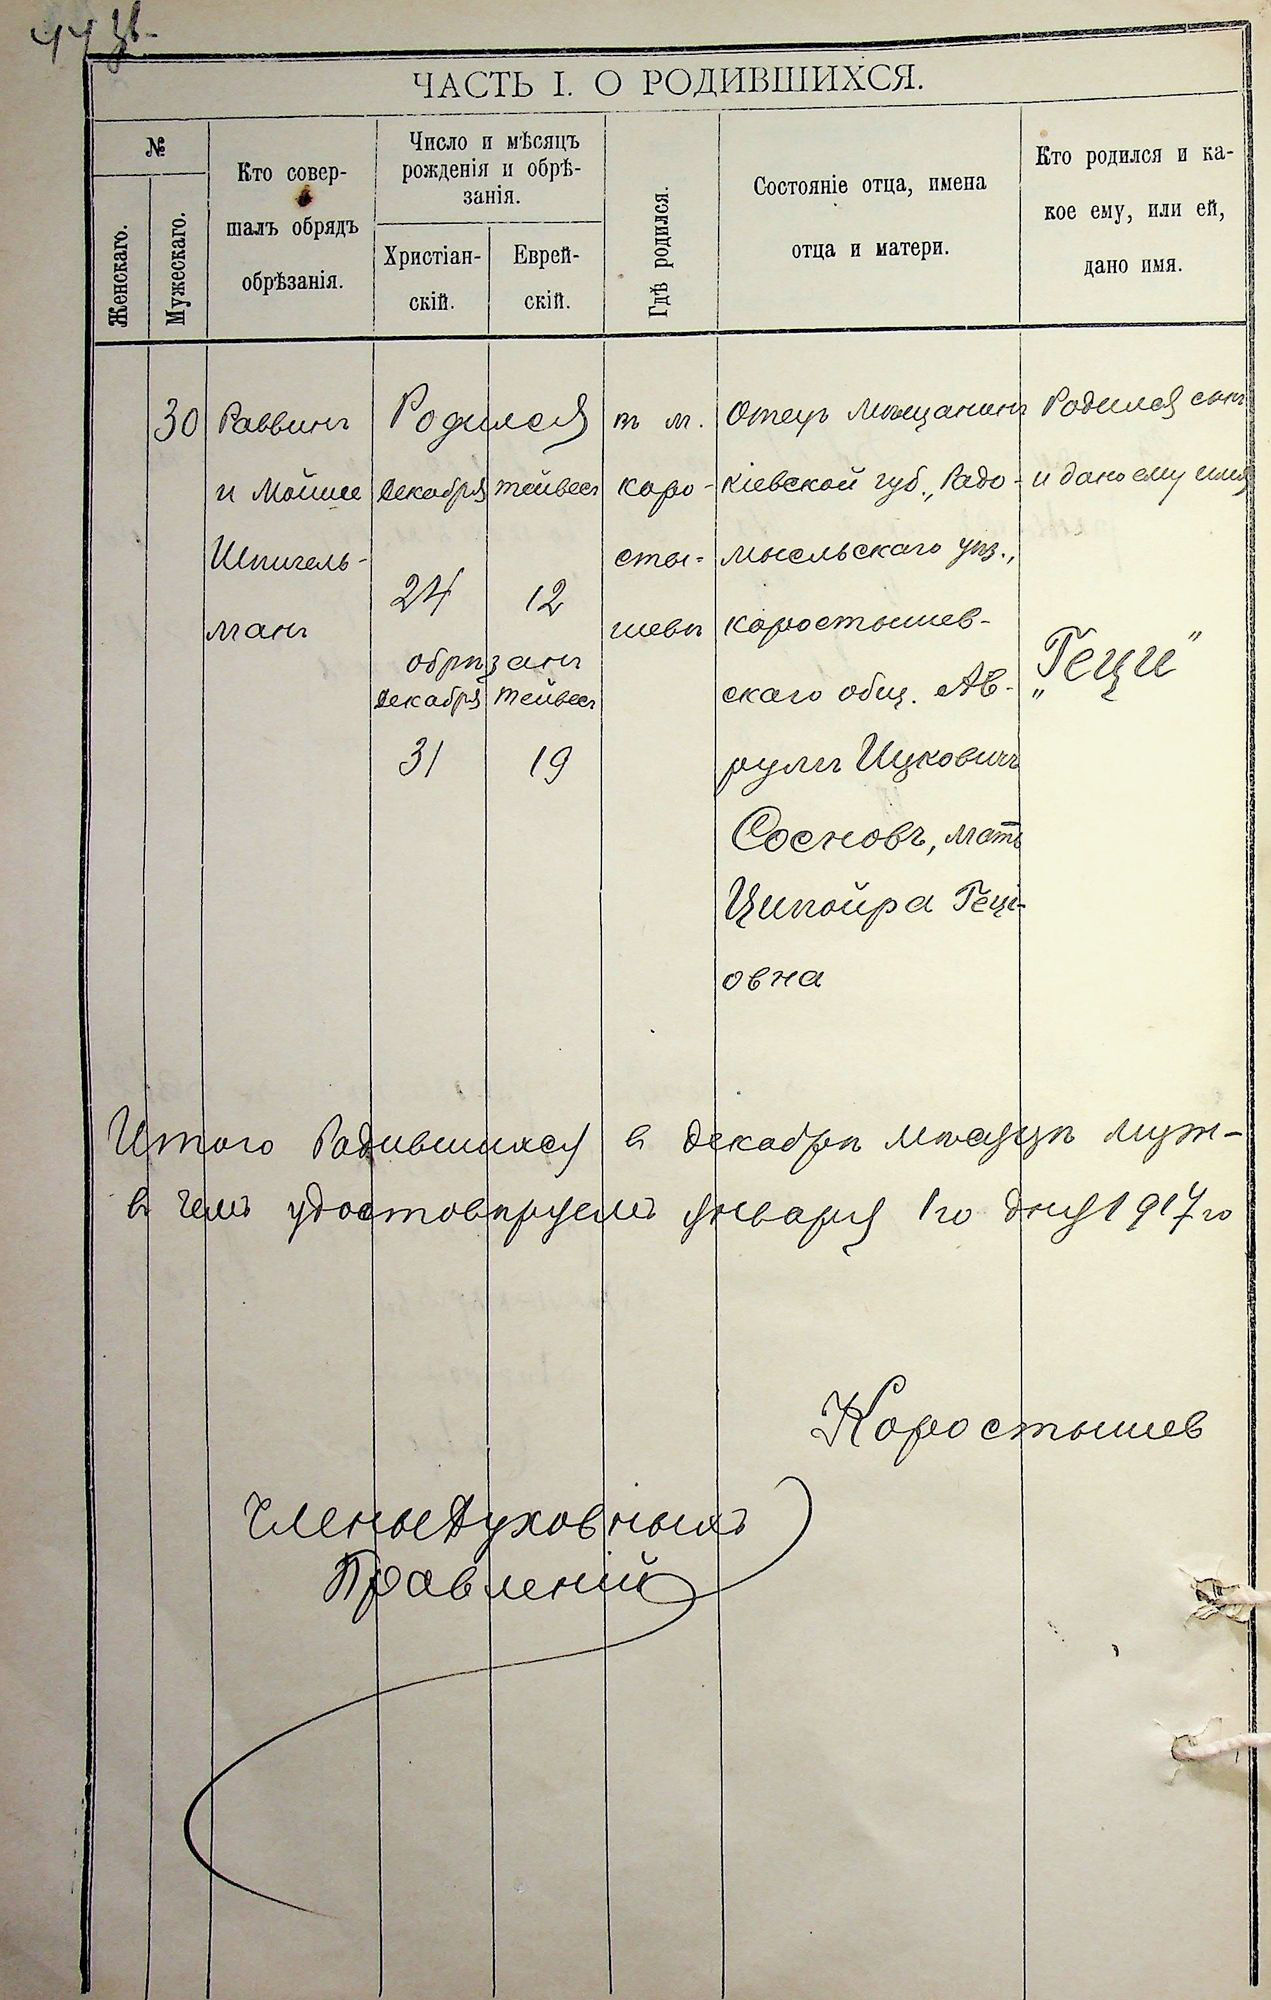 44
ЧАСТЬ I. О РОДИВШИХСЯ.
№
Женскаго.
Мужескаго.
Кто совер-
шалъ обрядъ
обрѣзанія.
Число и мѣсяцъ
рожденія и обрѣ-
занія.
Христіан-
скій.
Еврей-
скій.
Гдѣ родился.
Состояніе отца, имена
отца и матери.
Кто родился и ка-
кое ему, или ей,
дано имя.
30
Раввинъ
и Мойше
Шпигель-
манъ
Родился
Декабря Тейвесъ
24 12
обрѣзанъ
Декабря Тейвесъ
31 19
въ м.
Коро-
сты-
шевѣ
Отецъ мѣщанинъ
Кіевской губ., Радо-
мысльскаго уѣз.,
Коростышев-
скаго общ. Ав-
румъ Ицковичъ
Сосновъ, мать
Ципойра Геці-
овна
Родился сынъ
и дано ему имя
„Геци"
Итого Родившихся въ декабрѣ мѣсяцѣ муж-
въ чемъ удостовѣряемъ января 1го дня 1917го
Коростышев
Члены Духовныхъ
Правленій